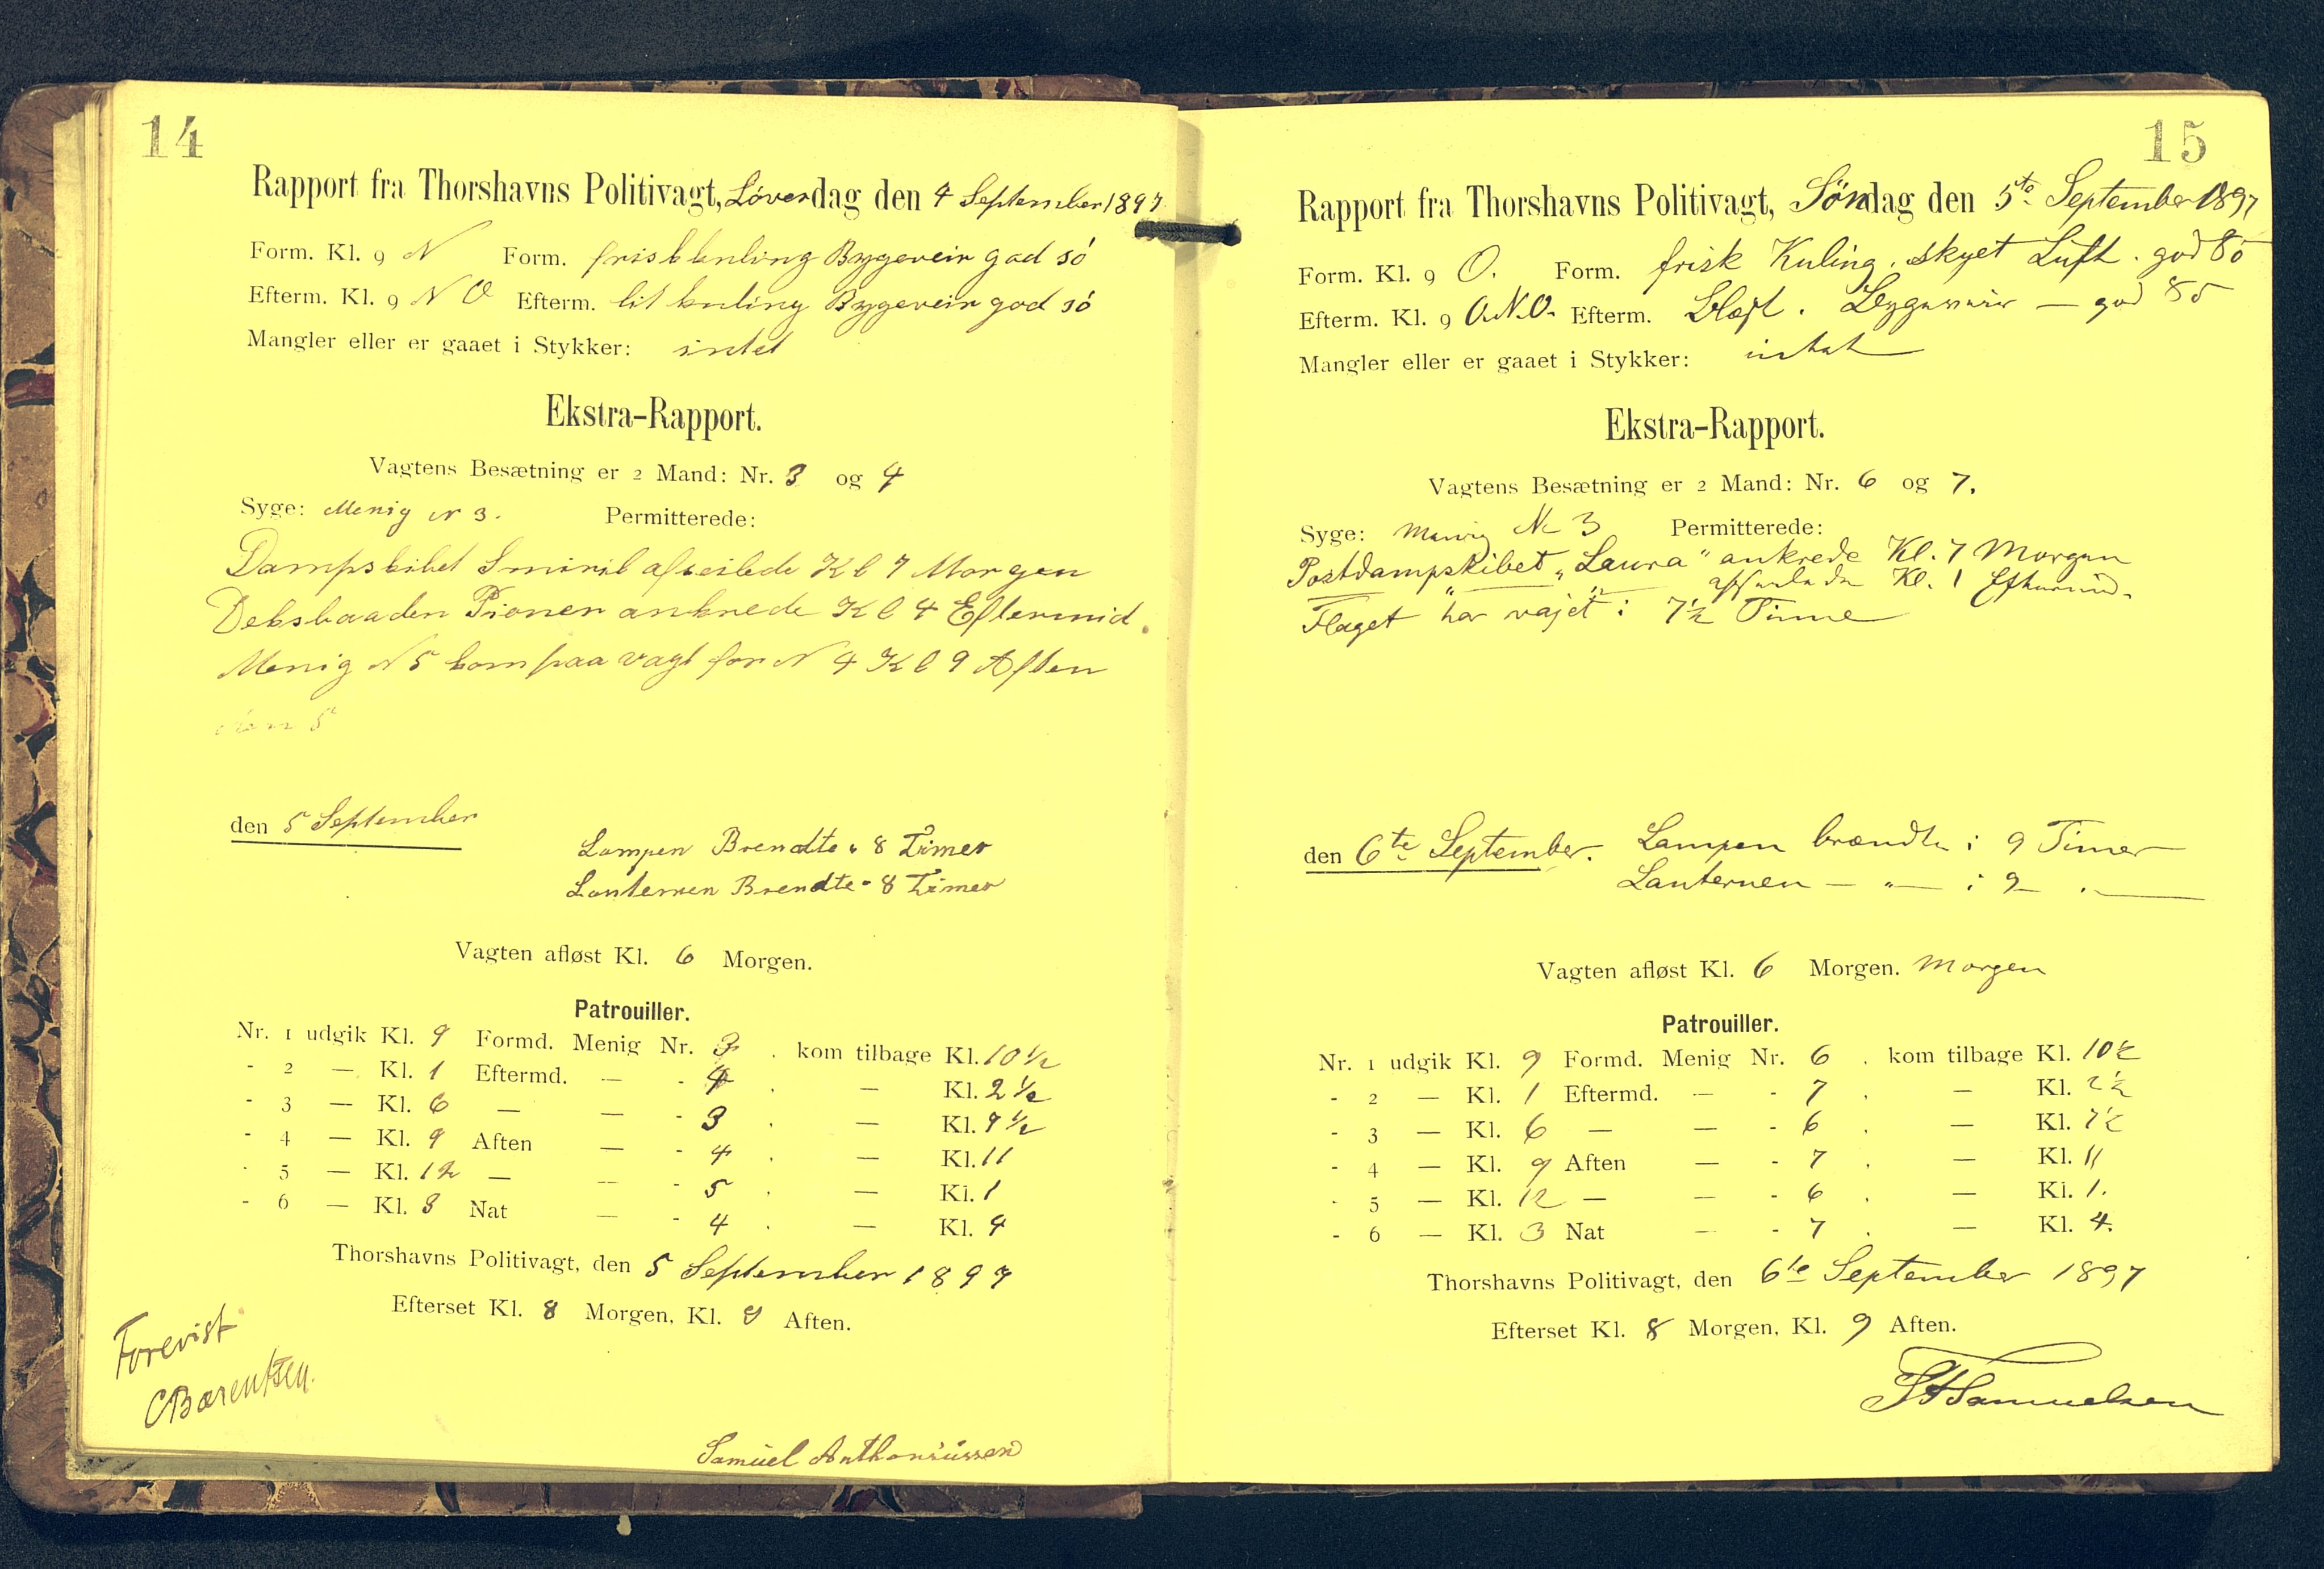 14
Rapport fra Thorshavns Politivagt, Löverdag den 4 September 1897
Form. Kl. 9 N Form. frisk kuling Bygeveir god só
Efterm. Kl. 9 N O Efterm. lit kuling Bygeveir god só
Mangler eller er gaaet i Stykker: intet
Ekstra-Rapport.
Vagtens Besætning er 2 Mand: Nr. 3 og 4
Syge: Menig N 3. Permitterede:
Dampskibet Smiril afseilede Kl 7 Morgen
Deksbaaden Pioner ankrede Kl 4 Eftermid.
Menig N 5 kom paa vagt for N 4 Kl 9 Aften
den 5 September
Lampen Brendte " 8 Timer
Lanternen Brendte - 8 Timer
Vagten afløst Kl. 6 Morgen.
Patrouiller.
Nr. 1 udgik Kl. 9 Formd. Menig Nr. 3 . kom tilbage Kl. 10 1/2
- 2 — Kl. 1 Eftermd. — - 4 . — Kl. 2 1/2
- 3 — Kl. 6 — — - 3 . — Kl. 7 1/2
- 4 — Kl. 9 Aften — - 4 . — Kl. 11
- 5 — Kl. 12 — — - 5 . — Kl. 1
- 6 — Kl. 3 Nat — - 4 . — Kl. 4
Thorshavns Politivagt, den 5 September 1897
Efterset Kl. 8 Morgen, Kl. 9 Aften.
Forevist
CBærentsen.
Samüel Anthoniüssen
15
Rapport fra Thorshavns Politivagt, Søndag den 5te September 1897
Form. Kl. 9 O. Form. frisk Kuling. skyet Luft. god Sö
Efterm. Kl. 9 O.N.O. Efterm. Sløjt. Bygeveir — god Sö
Mangler eller er gaaet i Stykker: intet
Ekstra-Rapport.
Vagtens Besætning er 2 Mand: Nr. 6 og 7.
Syge: Menig No 3 Permitterede:
Postdampskibet „Laura" ankrede Kl. 7 Morgen
— " — " — afseilede Kl. 1 Eftermid.
Flaget har vajet i 7 1/2 Time
den 6te September. Lampen brændte i 9 Timer
Lanternen — " — i 9 " —
Vagten afløst Kl. 6 Morgen. Morgen
Patrouiller.
Nr. 1 udgik Kl. 9 Formd. Menig Nr. 6 . kom tilbage Kl. 10 1/2
- 2 — Kl. 1 Eftermd. — - 7 . — Kl. 2 1/2
- 3 — Kl. 6 — — - 6 . — Kl. 7 1/2
- 4 — Kl. 9 Aften — - 7 . — Kl. 11
- 5 — Kl. 12 — — - 6 . — Kl. 1.
- 6 — Kl. 3 Nat — - 7 . — Kl. 4.
Thorshavns Politivagt, den 6te September 1897
Efterset Kl. 8 Morgen, Kl. 9 Aften.
Samuelsen